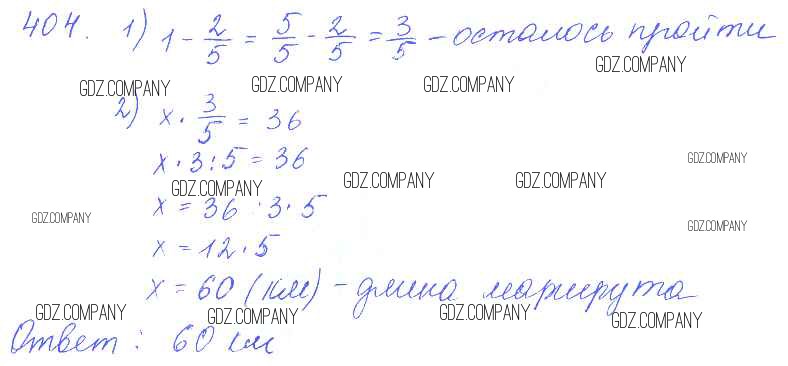 404. 1) 1 - 2/5 = 5/5 - 2/5 = 3/5 - осталось пройти
GDZ.COMPANY GDZ.COMPANY GDZ.COMPANY GDZ.COMPANY
2) x · 3/5 = 36
x · 3 : 5 = 36
GDZ.COMPANY GDZ.COMPANY GDZ.COMPANY GDZ.COMPANY
x = 36 : 3 · 5
GDZ.COMPANY GDZ.COMPANY
x = 12 · 5
x = 60 (км) - длина маршрута
GDZ.COMPANY GDZ.COMPANY GDZ.COMPANY GDZ.COMPANY
Ответ : 60 км